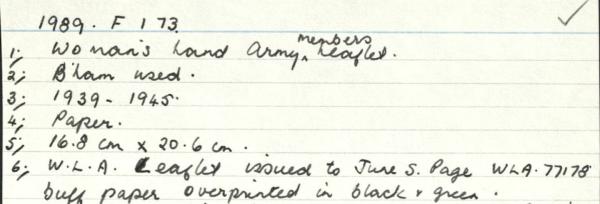 1989. F 173.
1; Woman's Land Army members leaflet.
2; B'ham used.
3; 1939 - 1945.
4; Paper.
5; 16.8 cm x 20.6 cm.
6; W.L.A. Leaflet issued to June S. Page WLA. 77178
buff paper overprinted in black & green.